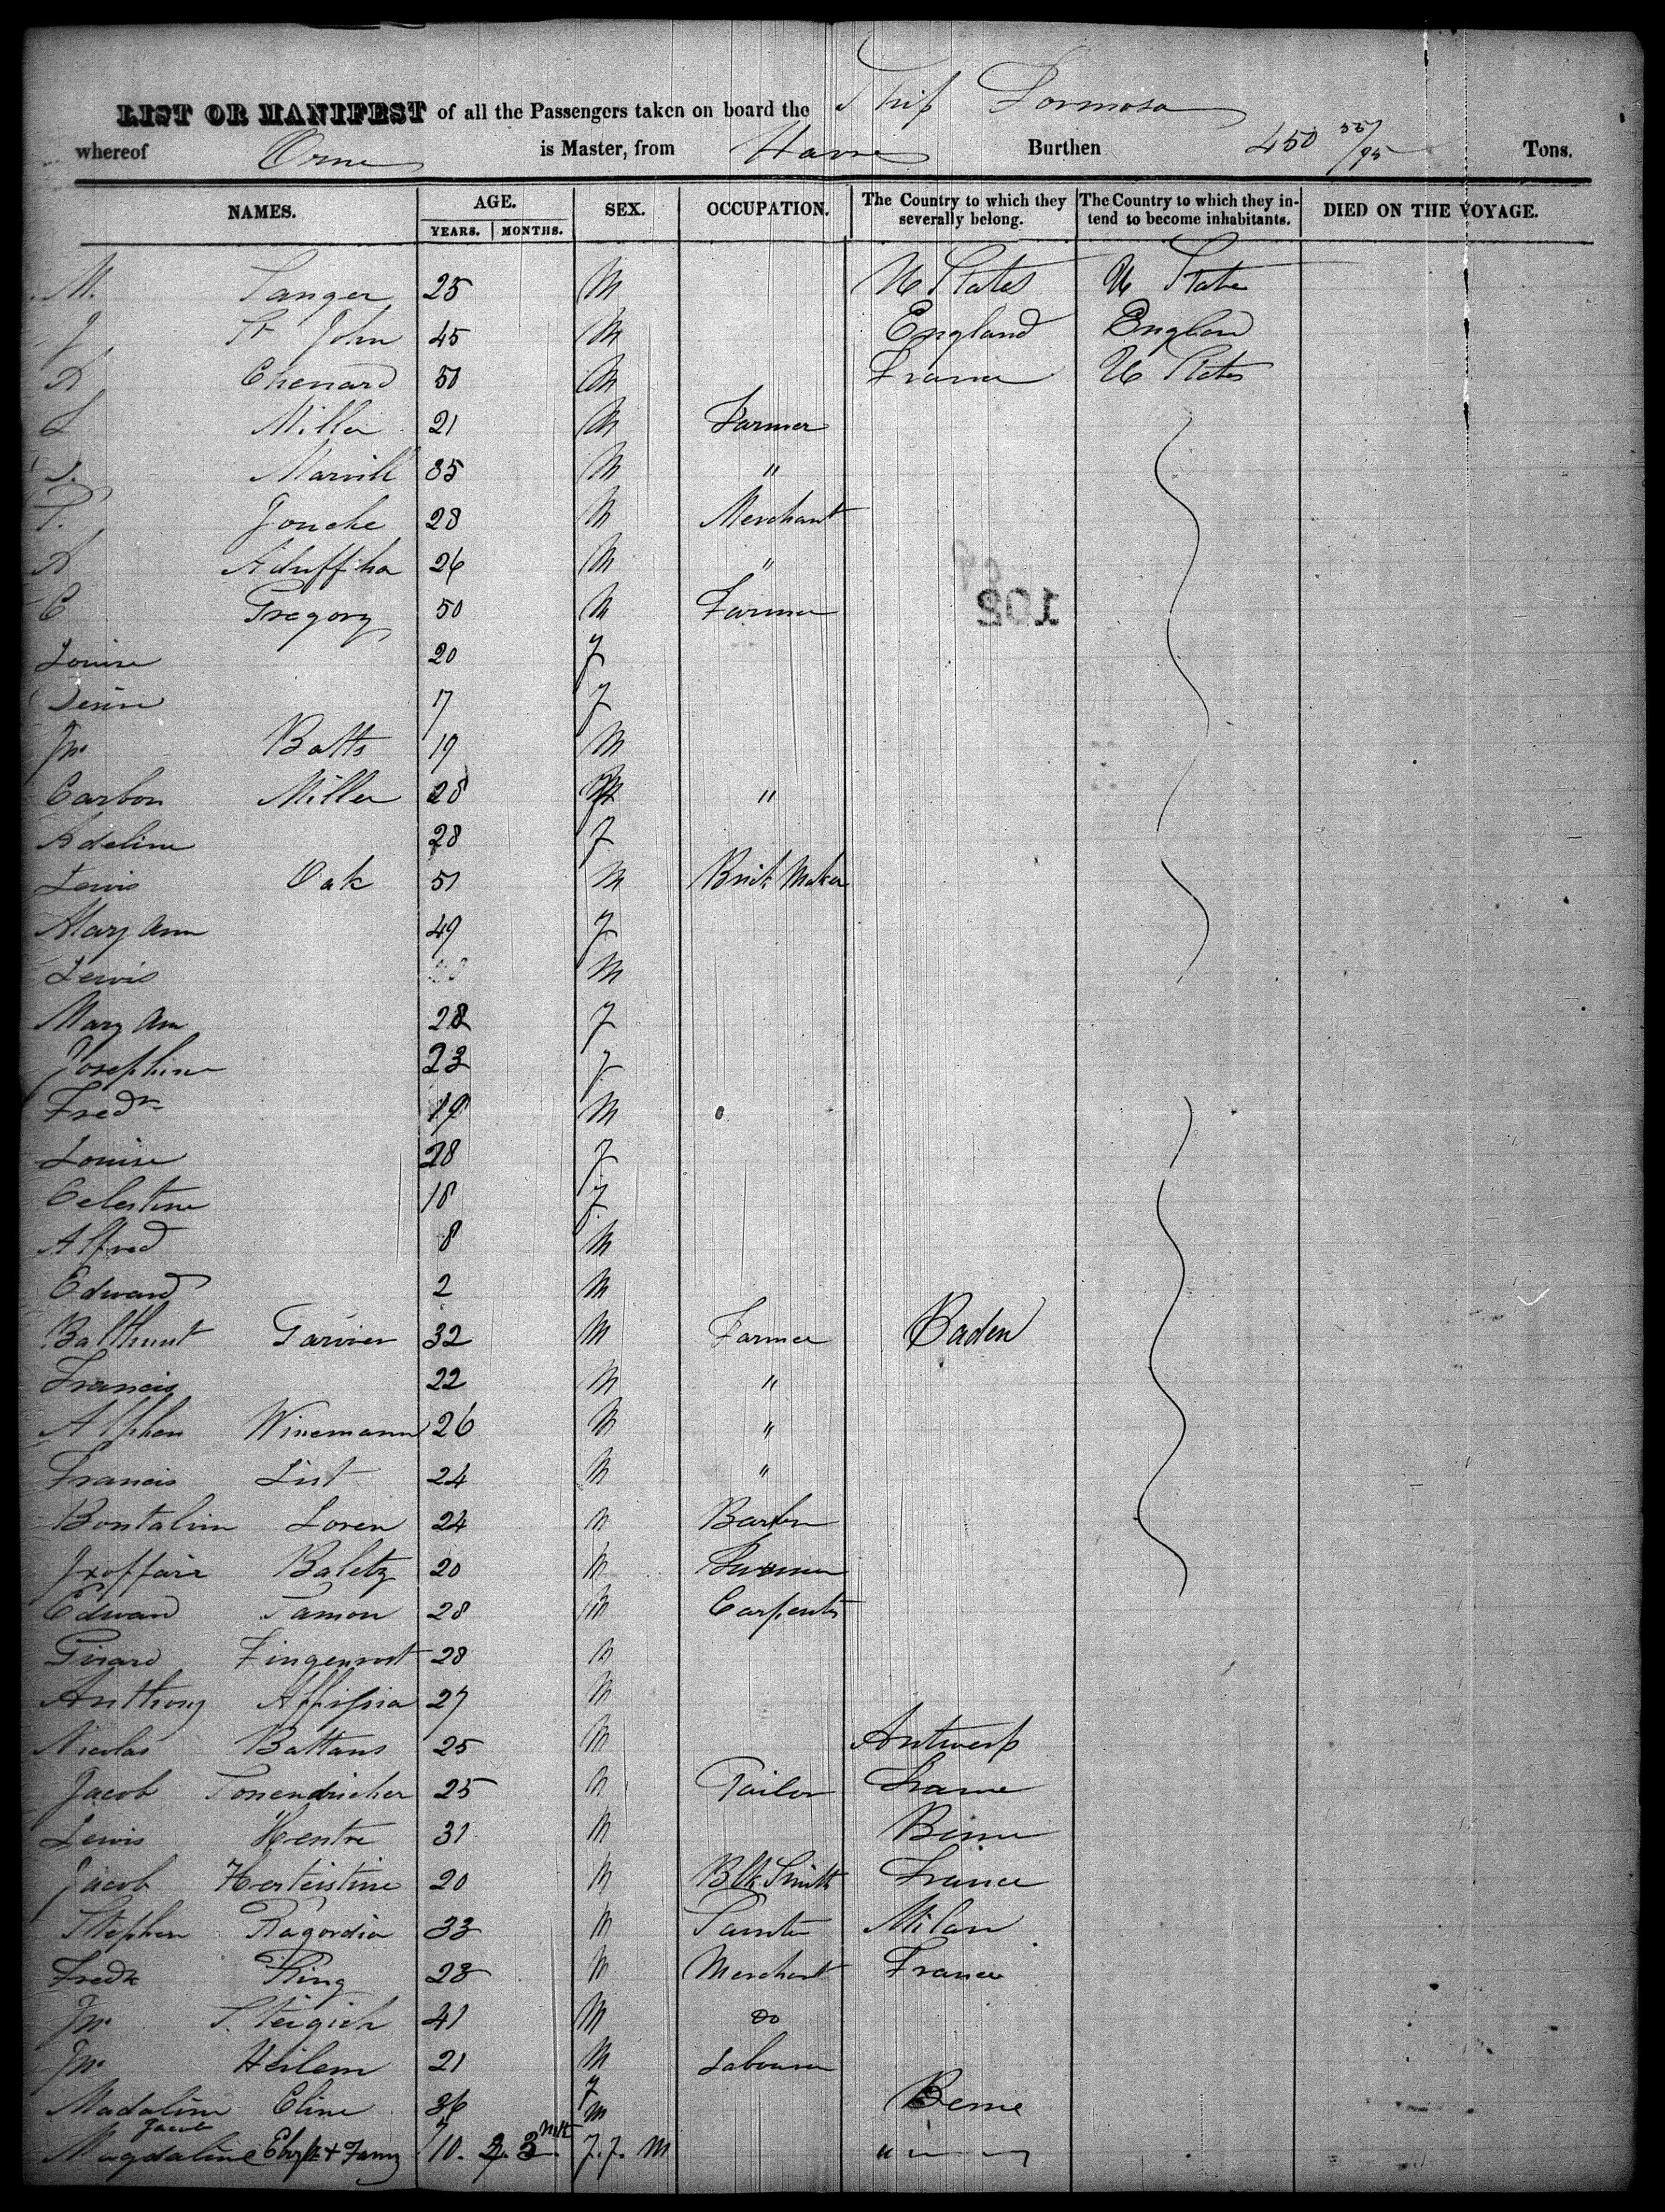 LIST OR MANIFEST of all the Passengers taken on board the Ship Formosa
whereof Orne is Master, from Havre Burthen 450 55/95 Tons.
NAMES. AGE. SEX. OCCUPATION. The Country to which they severally belong. The Country to which they intend to become inhabitants. DIED ON THE VOYAGE.
YEARS. MONTHS.
M. Sanger 25 M U States U State
J St John 45 M England England
A Chenard 50 M France U States
L Miller 21 M Farmer
Marvill 35 M "
Gouche 28 M Merchant
A 26 M "
C Gregory 50 M Farmer
102
Louise 20 F
17 F
Jno Batts 19 M
Carbon Miller 28 M "
Adeline 28 F
Lewis Oak 51 M Brick Maker
Mary Ann 49 F
Lewis M
Mary Ann 28 F
Josephine 23 F
Fredk 19 M
Louise 28 F
Celestine 18 F
Alfred 8 M
Edward 2 M
32 M Farmer Baden
Francis 22 M "
Winemann 26 M "
Francis List 24 M "
Loren 24 M
Baletz 20 M
Edward 28 M Carpenter
28 M
Anthony 27 M
Nicolas Battans 25 M Antwerp
Jacob 25 M Tailor France
Lewis Hentre 31 M
Jacob Herteistine 20 M Blk Smith France
Stephen Ragordia 33 M Painter Milan
Fredk King 28 M Merchant France
Jno 41 M do
Jno Heilem 21 M Labourer
Madaline Cline 36 F Berne
Jacob M
Magdaline Eliz & Fanny 10. 3 mth F. F. M "